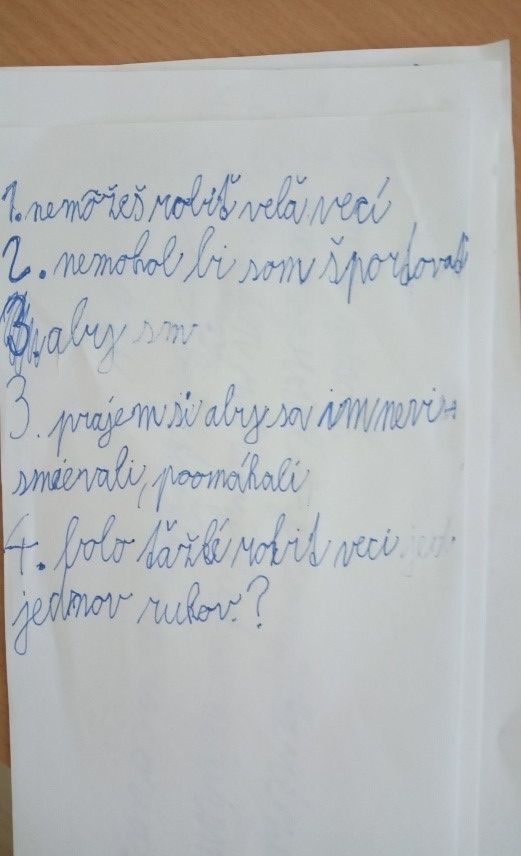 1. nemôžeš robiť velă vecí
2. nemohol bi som športovať
3. aby sm
3. prajem si aby sa im nevi-
smievali, poomáhali
4. bolo ťăžké robiť veci jed
jednov rukov.?